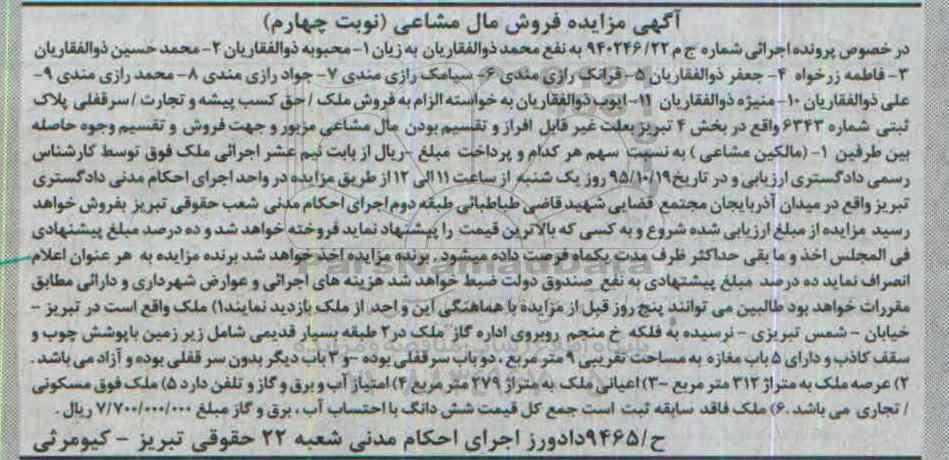 آگهی مزایده فروش مال مشاعی (نوبت چهارم)
در خصوص پرونده اجرائی شماره ج م ۹۴۰۲۴۶/۲۲ به نفع محمد ذوالفقاریان به زیان ۱- محبوبه ذوالفقاریان ۲- محمد حسین ذوالفقاریان
۳- فاطمه زرخواه ۴- جعفر ذوالفقاریان ۵- فرانک رازی مندی ۶- سیامک رازی مندی ۷- جواد رازی مندی ۸- محمد رازی مندی ۹-
علی ذوالفقاریان ۱۰- منیژه ذوالفقاریان ۱۱- ایوب ذوالفقاریان به خواسته الزام به فروش ملک / حق کسب پیشه و تجارت / سرقفلی پلاک
ثبتی شماره ۶۳۴۳ واقع در بخش ۴ تبریز بعلت غیر قابل افراز و تقسیم بودن مال مشاعی مزبور و جهت فروش و تقسیم وجوه حاصله
بین طرفین ۱- (مالکین مشاعی) به نسبت سهم هر کدام و پرداخت مبلغ -ریال از بابت نیم عشر اجرائی ملک فوق توسط کارشناس
رسمی دادگستری ارزیابی و در تاریخ ۹۵/۱۰/۱۹ روز یک شنبه از ساعت ۱۱ الی ۱۲ از طریق مزایده در واحد اجرای احکام مدنی دادگستری
تبریز واقع در میدان آذربایجان مجتمع قضایی شهید قاضی طباطبائی طبقه دوم اجرای احکام مدنی شعب حقوقی تبریز بفروش خواهد
رسید مزایده از مبلغ ارزیابی شده شروع و به کسی که بالاترین قیمت را پیشنهاد نماید فروخته خواهد شد و ده درصد مبلغ پیشنهادی
فی المجلس اخذ و ما بقی حداکثر ظرف مدت یکماه فرصت داده میشود . برنده مزایده اخذ خواهد شد برنده مزایده به هر عنوان اعلام
انصراف نماید ده درصد مبلغ پیشنهادی به نفع صندوق دولت ضبط خواهد شد هزینه های اجرائی و عوارض شهرداری و دارائی مطابق
مقررات خواهد بود طالبین می توانند پنج روز قبل از مزایده با هماهنگی این واحد از ملک بازدید نمایند ۱) ملک واقع است در تبریز -
خیابان - شمس تبریزی - نرسیده به فلکه خ منجم روبروی اداره گاز ملک در ۲ طبقه بسیار قدیمی شامل زیر زمین با پوشش چوب و
سقف کاذب و دارای ۵ باب مغازه به مساحت تقریبی ۹ متر مربع ، دو باب سر قفلی بوده -و ۳ باب دیگر بدون سر قفلی بوده و آزاد می باشد .
۲) عرصه ملک به متراژ ۳۱۲ متر مربع -۳) اعیانی ملک به متراژ ۲۷۹ متر مربع ۴) امتیاز آب و برق و گاز و تلفن دارد ۵) ملک فوق مسکونی
/ تجاری می باشد .۶) ملک فاقد سابقه ثبت است جمع کل قیمت شش دانگ با احتساب آب ، برق و گاز مبلغ ۷/۷۰۰/۰۰۰/۰۰۰ ریال .
ح/۹۴۶۵ دادورز اجرای احکام مدنی شعبه ۲۲ حقوقی تبریز - کیومرثی
ParsNamadData